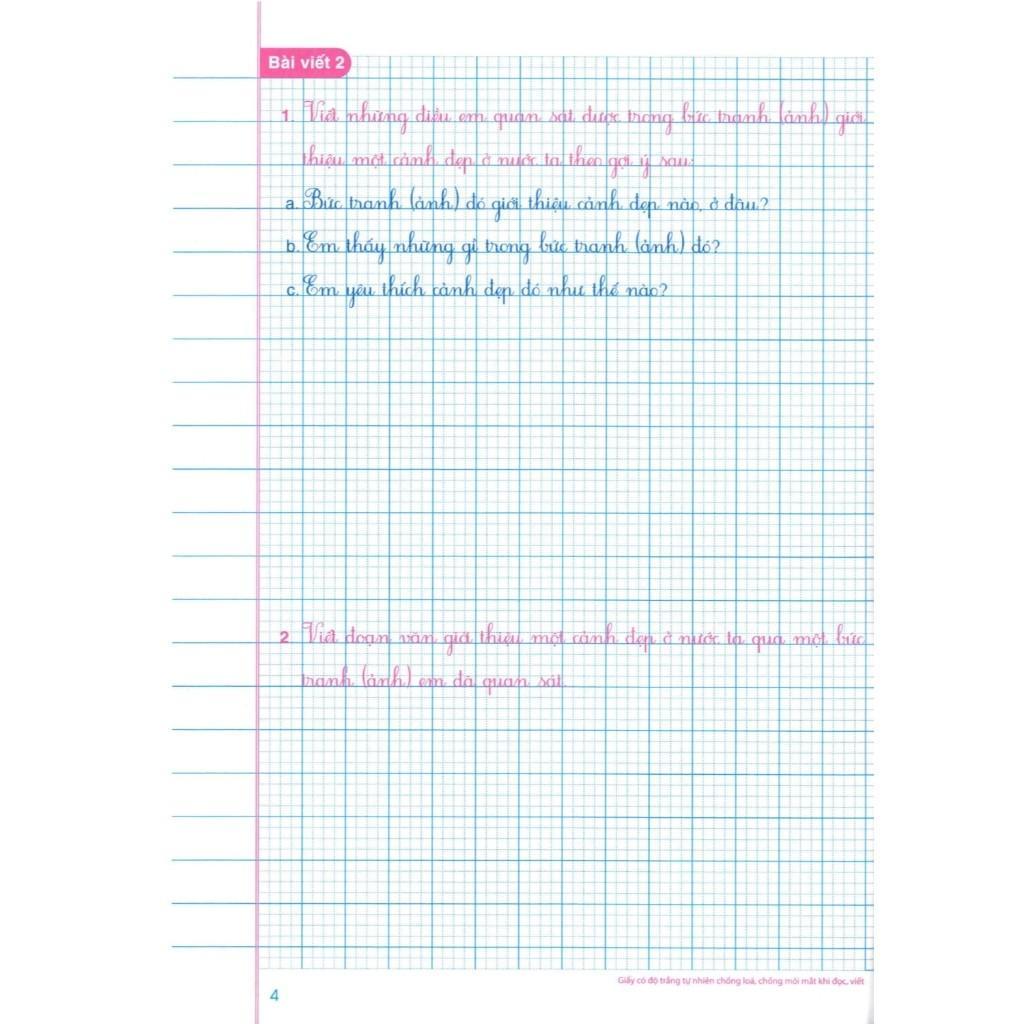 Bài viết 2
1. Viết những điều em quan sát được trong bức tranh (ảnh) giới
thiệu một cảnh đẹp ở nước ta theo gợi ý sau:
a. Bức tranh (ảnh) đó giới thiệu cảnh đẹp nào, ở đâu?
b. Em thấy những gì trong bức tranh (ảnh) đó?
c. Em yêu thích cảnh đẹp đó như thế nào?
2 Viết đoạn văn giới thiệu một cảnh đẹp ở nước ta qua một bức
tranh (ảnh) em đã quan sát.
Giấy có độ trắng tự nhiên chống loá, chống mỏi mắt khi đọc, viết
4